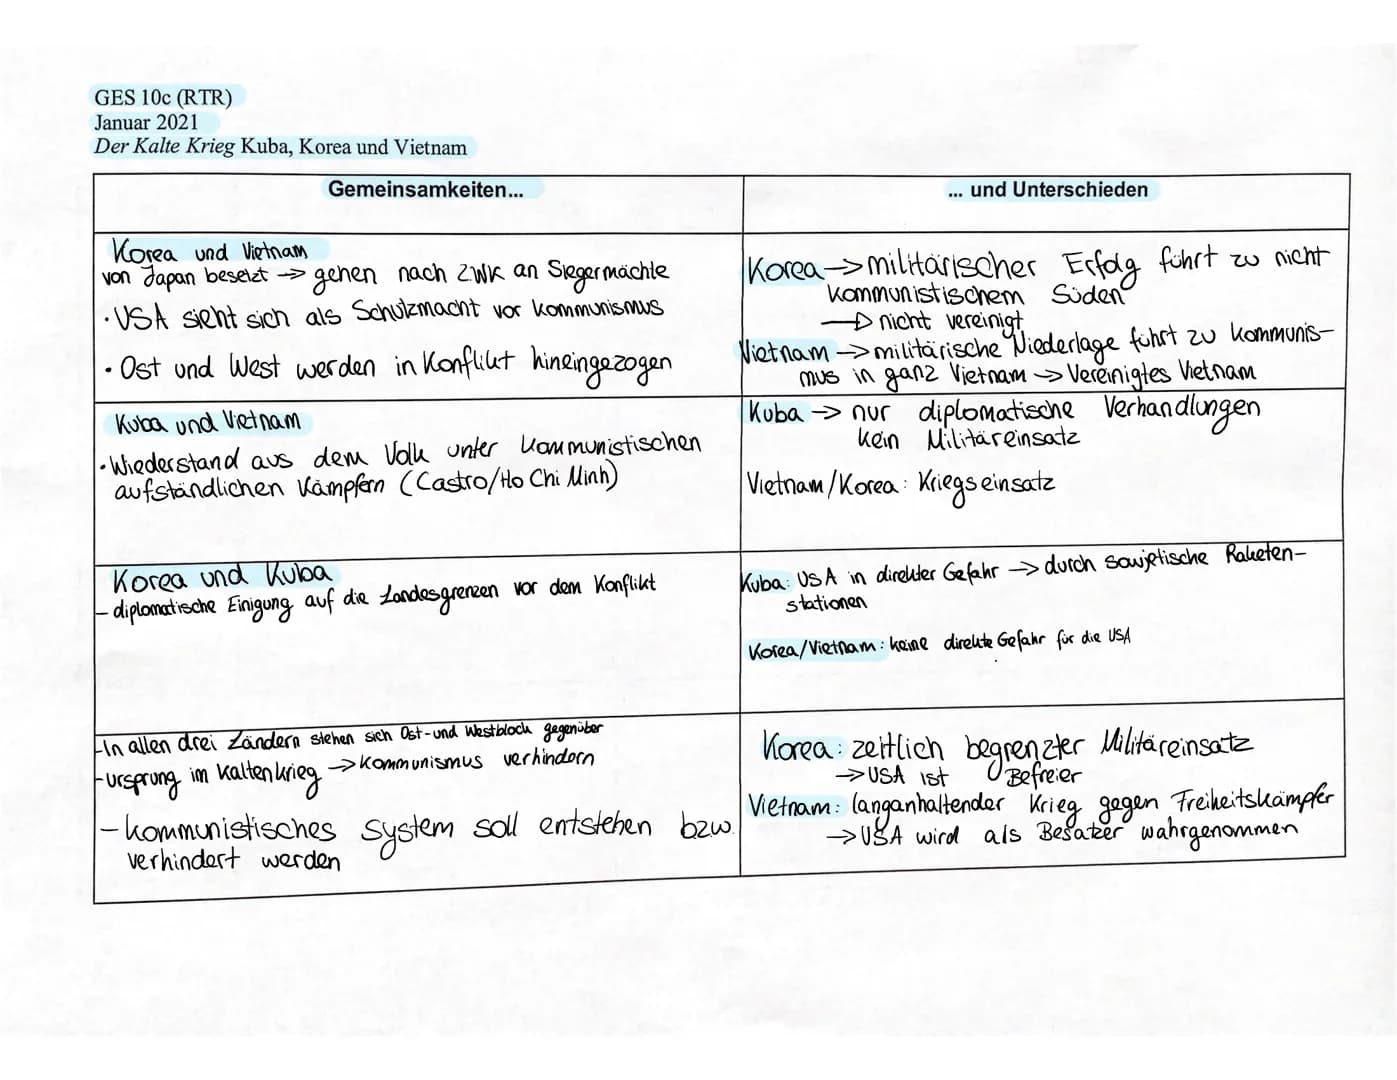 GES 10c (RTR)
Januar 2021
Der Kalte Krieg Kuba, Korea und Vietnam
Gemeinsamkeiten...
Korea und Vietnam
von Japan besetzt → gehen nach 2.WK an Siegermächte
· USA sieht sich als Schutzmacht vor Kommunismus
· Ost und West werden in Konflikt hineingezogen
... und Unterschieden
Korea → militärischer Erfolg führt zu nicht
kommunistischem Süden
→ nicht vereinigt
Vietnam → militärische Niederlage führt zu Kommunis-
mus in ganz Vietnam → Vereinigtes Vietnam
Kuba und Vietnam
· Wiederstand aus dem Volk unter kommunistischen
aufständlichen Kämpfern (Castro/Ho Chi Minh)
Kuba → nur diplomatische Verhandlungen
kein Militäreinsatz
Vietnam/Korea: Kriegseinsatz
Korea und Kuba
- diplomatische Einigung auf die Landesgrenzen vor dem Konflikt
Kuba: USA in direkter Gefahr → durch sowjetische Raketen-
stationen
Korea/Vietnam: keine direkte Gefahr für die USA
- In allen drei Ländern stehen sich Ost- und Westblock gegenüber
- ursprung im Kalten krieg → Kommunismus verhindern
- kommunistisches system soll entstehen bzw.
verhindert werden
Korea: zeitlich begrenzter Militäreinsatz
→ USA ist Befreier
Vietnam: langanhaltender Krieg gegen Freiheitskämpfer
→ USA wird als Besatzer wahrgenommen